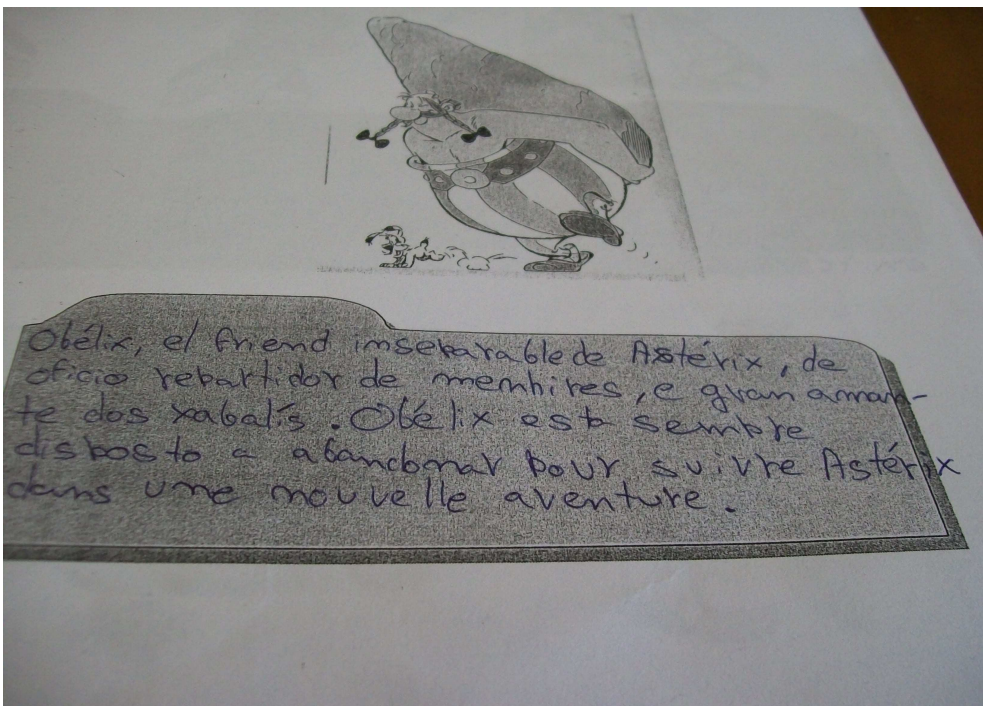 Obélix, el friend inseparable de Astérix, de
oficio repartidor de menhires, e gran aman-
te dos xabalís. Obélix est sempre
disposto a abandonar pour suivre Astérix
dans une nouvelle aventure.